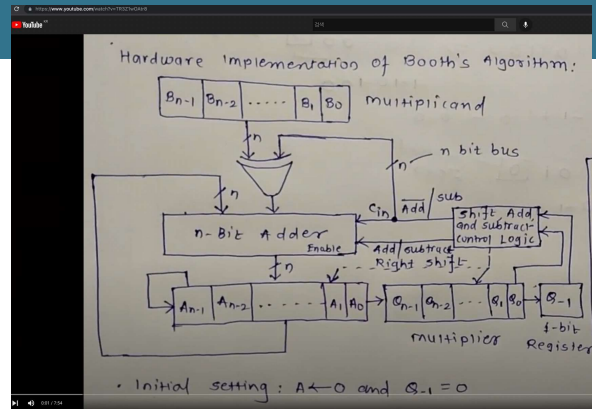 https://www.youtube.com/watch?v=
YouTube
검색
Hardware Implementation of Booth's Algorithm:
Bn-1 Bn-2 ..... B1 B0 multiplicand
n
n n bit bus
n Cin Add/sub
Shift, Add, and subtract control Logic
n-Bit Adder
Enable
Add/subtract
Right Shift
n
An-1 An-2 ...... A1 A0 Qn-1 Qn-2 ... Q1 Q0 Q-1
multiplier 1-bit Register
• Initial setting : A←0 and Q-1 = 0
0:01 / 7:54